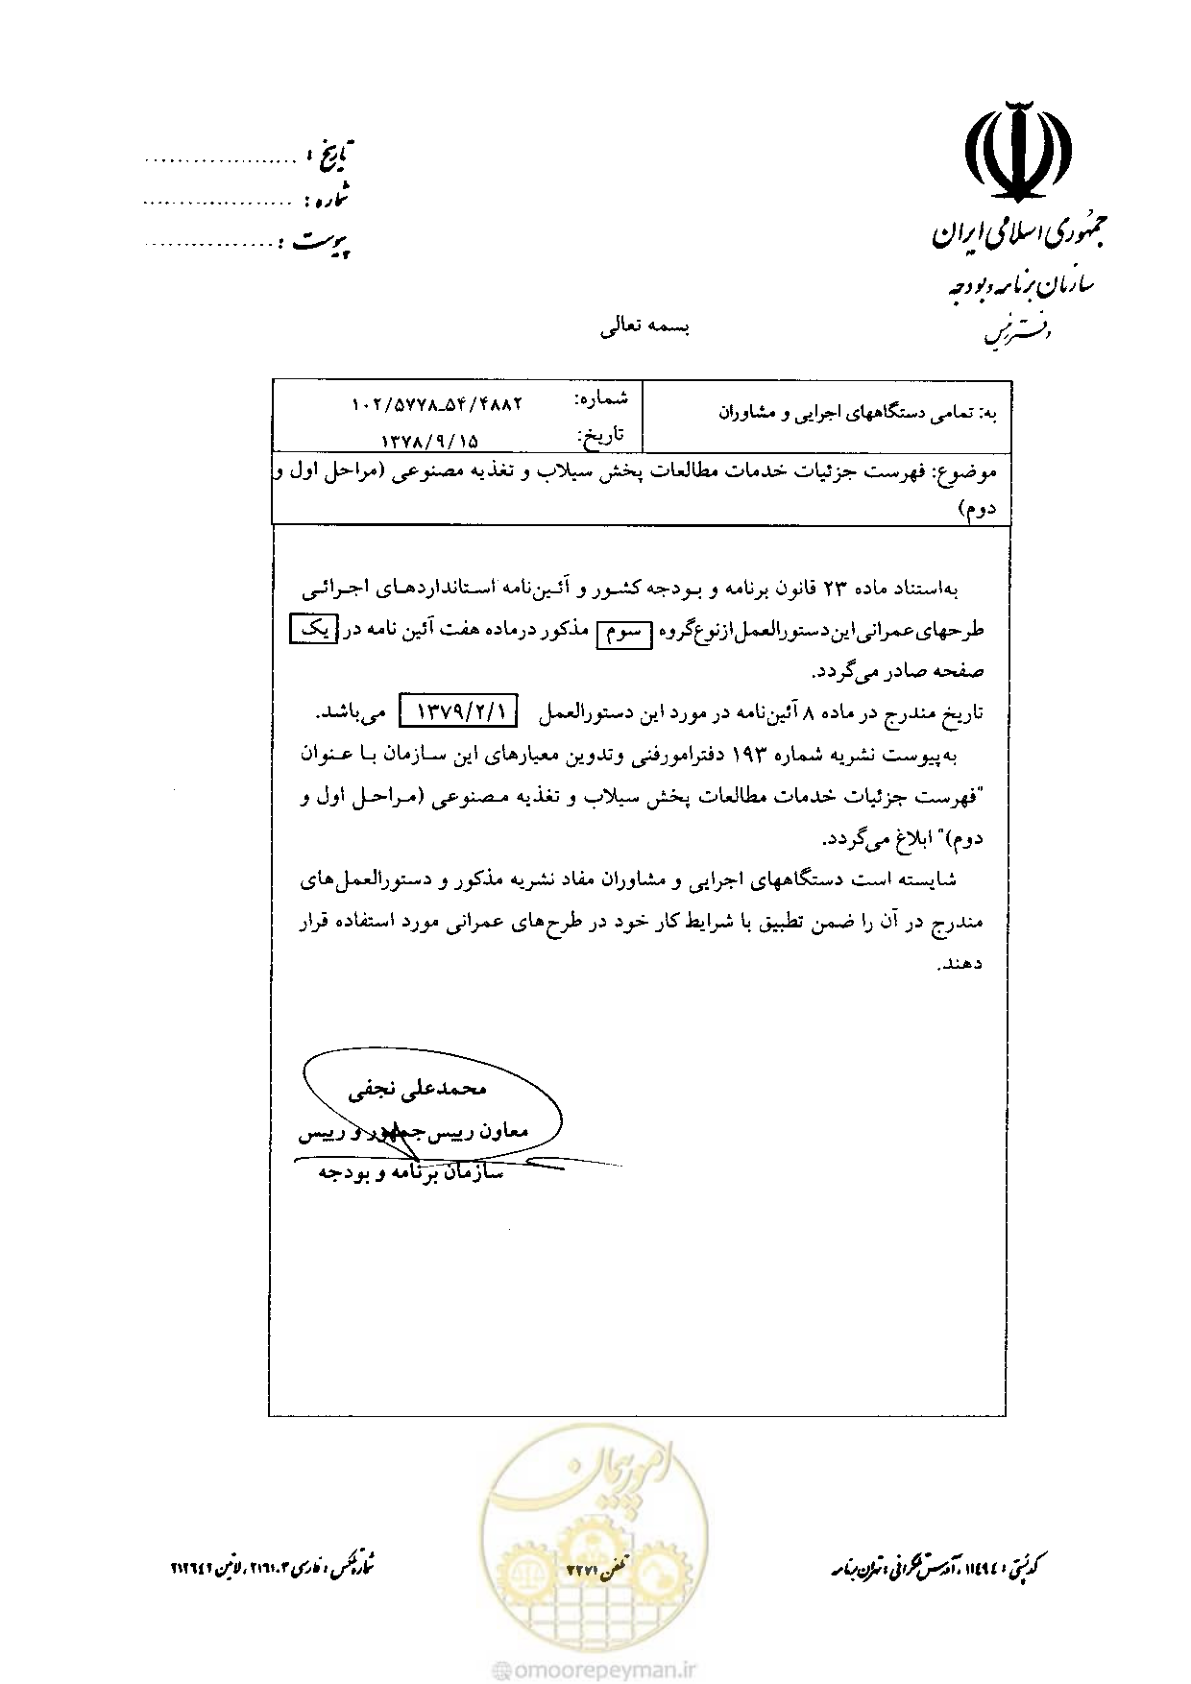 جمهوری اسلامی ایران
سازمان برنامه و بودجه
دفتر رئیس
تاریخ : ....................
شماره : ....................
پیوست : ....................
بسمه تعالی
به: تمامی دستگاههای اجرایی و مشاوران
شماره: ۱۰۲/۵۷۷۸ـ۵۴/۴۸۸۲
تاریخ: ۱۳۷۸/۹/۱۵
موضوع: فهرست جزئیات خدمات مطالعات پخش سیلاب و تغذیه مصنوعی (مراحل اول و
دوم)
به‌استناد ماده ۲۳ قانون برنامه و بودجه کشور و آئین‌نامه استانداردهای اجرائی
طرحهای عمرانی این دستورالعمل از نوع گروه سوم مذکور درماده هفت آئین نامه در یک
صفحه صادر می‌گردد.
تاریخ مندرج در ماده ۸ آئین‌نامه در مورد این دستورالعمل ۱۳۷۹/۲/۱ می‌باشد.
به‌پیوست نشریه شماره ۱۹۳ دفترامورفنی وتدوین معیارهای این سازمان با عنوان
"فهرست جزئیات خدمات مطالعات پخش سیلاب و تغذیه مصنوعی (مراحل اول و
دوم)" ابلاغ می‌گردد.
شایسته است دستگاههای اجرایی و مشاوران مفاد نشریه مذکور و دستورالعمل‌های
مندرج در آن را ضمن تطبیق با شرایط کار خود در طرح‌های عمرانی مورد استفاده قرار
دهند.
محمدعلی نجفی
معاون رییس‌جمهور و رییس
سازمان برنامه و بودجه
امور پیمان
کد پستی : ۱۱۴۹۴ ، آدرس تلگرافی : تهران برنامه
تلفن ۲۲۷۱
شماره تلکس : فارسی ۲۱۶۱۰۳ ، لاتین ۲۱۲۶۴۲
@omoorepeyman.ir